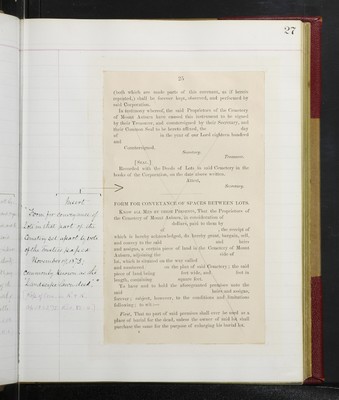 27
25
(both which are made parts of this covenant, as if herein
repeated,) shall be forever kept, observed, and performed by
said Corporation.
In testimony whereof, the said Proprietors of the Cemetery
of Mount Auburn have caused this instrument to be signed
by their Treasurer, and countersigned by their Secretary, and
their Common Seal to be hereto affixed, the day
of in the year of our Lord eighteen hundred
and
Countersigned,
Secretary.
Treasurer.
[SEAL.]
Recorded with the Deeds of Lots in said Cemetery in the
books of the Corporation, on the date above written.
Attest,
Secretary.
Insert
"Form for conveyance of
Lots in that part of the
Cemetery set apart by vote
of the Trustees passed
November 10, 1873
commonly known as the
"Landscape Lawn deed."
FORM FOR CONVEYANCE OF SPACES BETWEEN LOTS.
KNOW ALL MEN BY THESE PRESENTS, That the Proprietors of
the Cemetery of Mount Auburn, in consideration of
dollars, paid to them by
of , the receipt of
which is hereby acknowledged, do hereby grant, bargain, sell,
and convey to the said and heirs
and assigns, a certain piece of land in the Cemetery of Mount
Auburn, adjoining the side of
lot, which is situated on the way called
and numbered on the plan of said Cemetery; the said
piece of land being feet wide, and, feet in
length, containing square feet.
To have and to hold the aforegranted premises unto the
said heirs and assigns,
forever; subject, however, to the conditions and limitations
following; to wit:—
First, That no part of said premises shall ever be used as a
place of burial for the dead, unless the owner of said lot shall
purchase the same for the purpose of enlarging his burial lot.